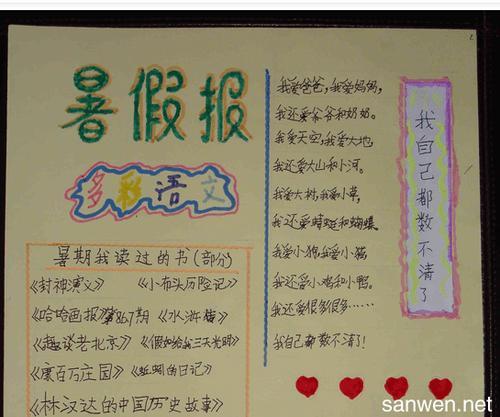 暑假报
多彩语文
暑期我读过的书(部分)
《封神演义》 《小布头历险记》
《哈哈画报》第8.7期 《水浒传》
《趣谈老北京》 《假如给我三天光明》
《康百万庄园》 《蚯蚓的日记》
《林汉达的中国历史故事》
我爱爸爸,我爱妈妈,
我还爱爷爷和奶奶。
我爱天空,我爱大地,
我还爱大山和小河。
我爱大树,我爱小草,
我还爱蜻蜓和蝴蝶。
我爱小狗,我爱小猫
我还爱小鸡和小鸭。
我还爱很多很多……
我自己都数不清了!
我自己都数不清了
sanwen.net